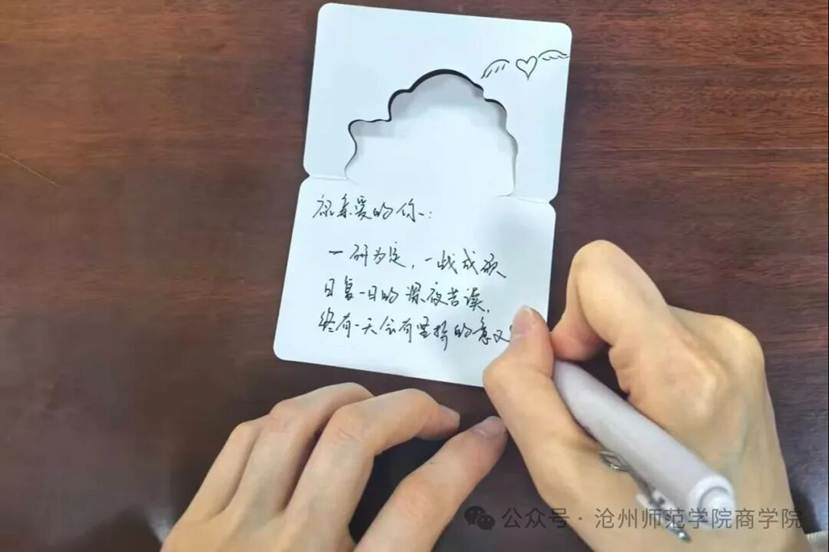 祝亲爱的你:
一研为定,一战成硕
日复一日的深夜苦读,
终有一天会有坚持的意义
公众号·沧州师范学院商学院